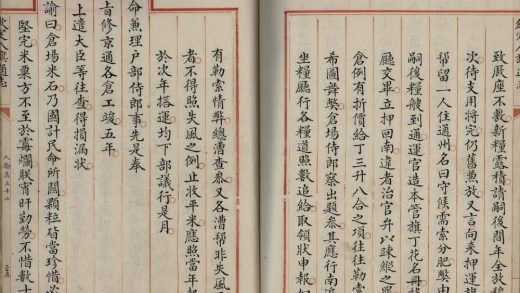 致厫座不敷新糧露積請嗣後間年全放稜
次待支用將完仍舊兼放又言向來押運通
幫留一人住通州名曰守候需索分肥弊由
嗣後糧艘到通運官造本管旗丁花名冊移
廳交畢立押回南違者治官弁以疎縱之罪
倉例有折價給丁三升八合之項往往勒索
希圖舞弊倉場侍郎察出題叅其應行南追
坐糧廳行各糧道照數追給取領狀申報如
有勒索情弊總漕查叅又各漕幫非失風
者不得照失風之例止收平米應照當年起
於次年搭運均下部議行是月
命兼理戶部侍郎事先是奉
旨修京通各倉工竣五年
上遣大臣等往查得損漏狀
諭曰倉場米石乃國計民命所關顆粒皆當珍惜必
堅完米粟方不至於霉爛朕宵旰勤勞不惜數十
欽定八旗通志
人物志三十二